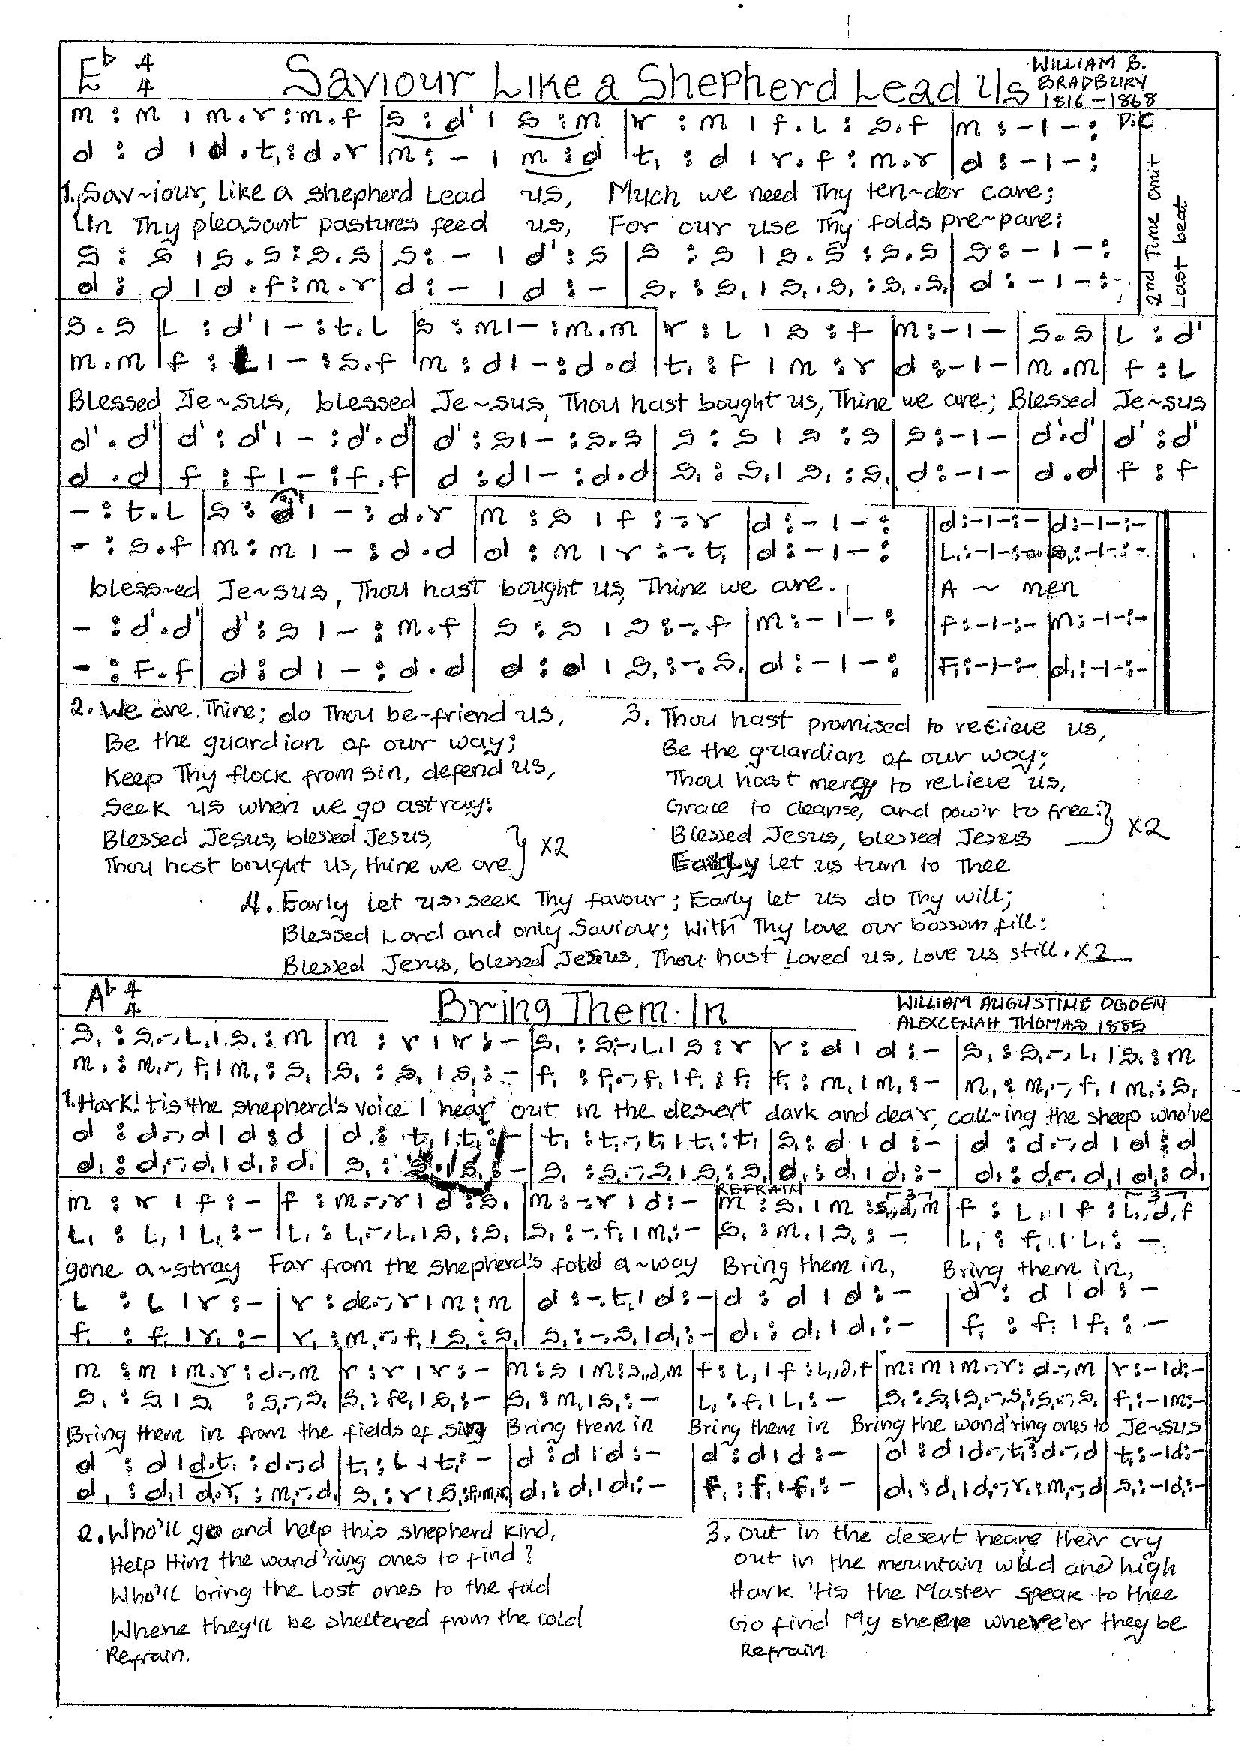 E♭ 4/4 Saviour Like a Shepherd Lead Us WILLIAM B. BRADBURY 1816-1868
m : m | m.r : m.f | s : d' | s : m | r : m | f.l : s.f | m : - | - : D.C
d : d | d.t, : d.r | m : - | m : d | t, : d | r.f : m.r | d : - | - :
1. Sav~iour, like a shepherd lead us, Much we need Thy ten~der care;
In Thy pleasant pastures feed us, For our use Thy folds pre~pare:
2nd Time omit Last beat
s : s | s.s : s.s | s : - | d' : s | s : s | s.s : s.s | s : - | - :
d : d | d.f : m.r | d : - | d : - | s, : s, | s,.s, : s,.s, | d : - | - :
s.s | l : d' | - : t.l | s : m | - : m.m | r : l | s : f | m : - | - | s.s | l : d'
m.m | f : l | - : s.f | m : d | - : d.d | t, : f | m : r | d : - | - | m.m | f : l
Blessed Je~sus, blessed Je~sus, Thou hast bought us, Thine we are; Blessed Je~sus
d'.d' | d' : d' | - : d'.d' | d' : s | - : s.s | s : s | s : s | s : - | - | d'.d' | d' : d'
d.d | f : f | - : f.f | d : d | - : d.d | s, : s, | s, : s, | d : - | - | d.d | f : f
- : t.l | s : d' | - : d.r | m : s | f : -.r | d : - | - : | d : - | - : - | d : - | - : -
- : s.f | m : m | - : d.d | d : m | r : -.t, | d : - | - : | l, : - | - : - | s, : - | - : -
bless~ed Je~sus, Thou hast bought us, Thine we are. A ~ men
- : d'.d' | d' : s | - : m.f | s : s | s : -.f | m : - | - : | f : - | - : - | m : - | - : -
- : f.f | d : d | - : d.d | d : d | s, : -.s, | d : - | - : | f, : - | - : - | d, : - | - : -
2. We are Thine; do Thou be-friend us,
Be the guardian of our way;
Keep Thy flock from sin, defend us,
Seek us when we go astray:
Blessed Jesus, blessed Jesus,
Thou hast bought us, thine we are } X2
3. Thou hast promised to recieve us,
Be the guardian of our way;
Thou hast mercy to relieve us,
Grace to cleanse, and pow'r to free:
Blessed Jesus, blessed Jesus
Early let us turn to Thee } X2
4. Early let us seek Thy favour; Early let us do Thy will;
Blessed Lord and only Saviour; With Thy love our bossom fill:
Blessed Jesus, blessed Jesus, Thou hast loved us, love us still. X2
A♭ 4/4 Bring Them In WILLIAM AUGUSTINE OGDEN
ALEXCENAH THOMAS 1885
s, : s,.-,l, | s, : m | m : r | r : - | s, : s,.-,l, | s : r | r : d | d : - | s, : s,.-,l, | s, : m
m, : m,.-,f, | m, : s, | s, : s, | s, : - | f, : f,.-,f, | f, : f, | f, : m, | m, : - | m, : m,.-,f, | m, : s,
1. Hark! tis the shepherd's voice I hear out in the desert dark and dear, call~ing the sheep who've
d : d.-,d | d : d | d : t, | t, : - | t, : t,.-,t, | t, : t, | s, : d | d : - | d : d.-,d | d : d
d, : d,.-,d, | d, : d, | s, : s, | s, : - | s, : s,.-,s, | s, : s, | d, : d, | d, : - | d, : d,.-,d, | d, : d,
REFRAIN
m : r | f : - | f : m.-,r | d : s, | m : -.r | d : - | m : s, | m : s,,d,m | f : l, | f : l,,d,f
l, : l, | l, : - | l, : l,.-,l, | s, : s, | s, : -.f, | m, : - | s, : m, | s, : - | l, : f, | l, : -
gone a~stray Far from the shepherd's fold a~way Bring them in, Bring them in,
l : l | r : - | r : de.-,r | m : m | d : -.t, | d : - | d : d | d : - | d : d | d : -
f, : f, | r, : - | r, : m,.-,f, | s, : s, | s, : -.s, | d, : - | d, : d, | d, : - | f, : f, | f, : -
m : m | m.r : d.-,m | r : r | r : - | m : s | m : s,,d,m | f : l, | f : l,,d,f | m : m | m.-,r : d.-,m | r : - | d : -
s, : s, | s, : s,.-,s, | s, : fe, | s, : - | s, : m, | s, : - | l, : f, | l, : - | s, : s, | s,.-,s, : s,.-,s, | f, : - | m, : -
Bring them in from the fields of sin Bring them in Bring them in Bring the wand'ring ones to Je~sus
d : d | d.t, : d.-,d | t, : l, | t, : - | d : d | d : - | d : d | d : - | d : d | d.-,t, : d.-,d | t, : - | d : -
d, : d, | d,.r, : m,.-,d, | s, : r | s, | d, : d, | d, : - | f, : f, | f, : - | d, : d, | d,.-,r, : m,.-,d | s, : - | d, : -
2. Who'll go and help this shepherd kind,
Help Him the wand'ring ones to find?
Who'll bring the lost ones to the fold
Where they'll be sheltered from the cold
Refrain.
3. out in the desert heare their cry
out in the mountain wild and high
Hark 'tis the Master speak to thee
Go find My sheep where'er they be
Refrain